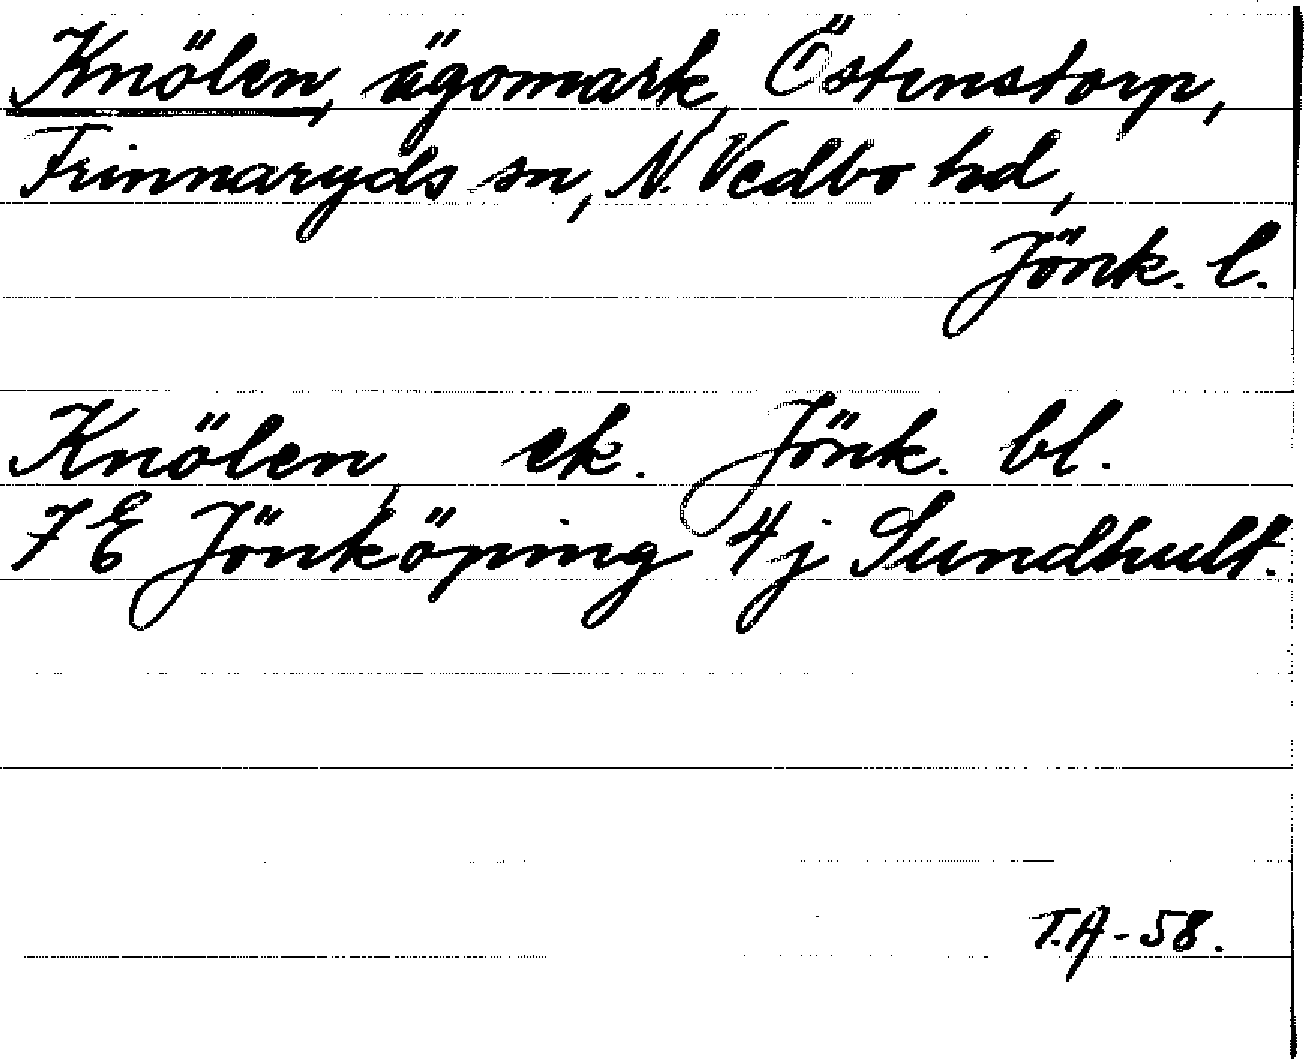 Knölen, ägomark, Östenstorp,
Frinnaryds sn, N. Vedbo hd,
Jönk. l.
Knölen, ek. Jönk. bl.
7 E Jönköping 4 j Sundhult.
T.A-58.